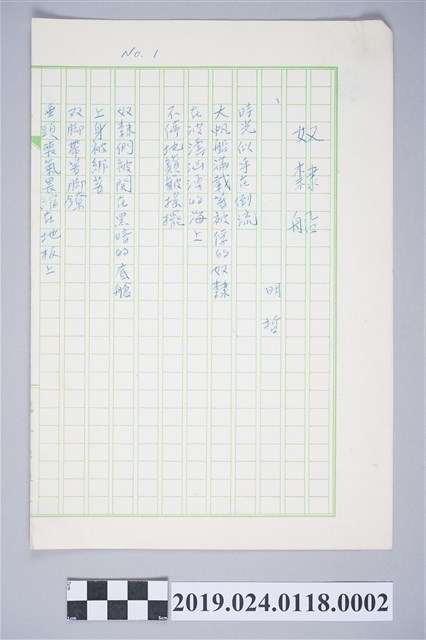 No. 1
奴隸船
明哲
時光似乎在倒流
大帆船滿載著被俘的奴隸
在波濤洶湧的海上
不停地顛簸搖擺
奴隸們被関在黑暗的底艙
上身被綁著
双脚帶著脚鐐
垂頭喪氣畏縮在地板上
2019.024.0118.0002